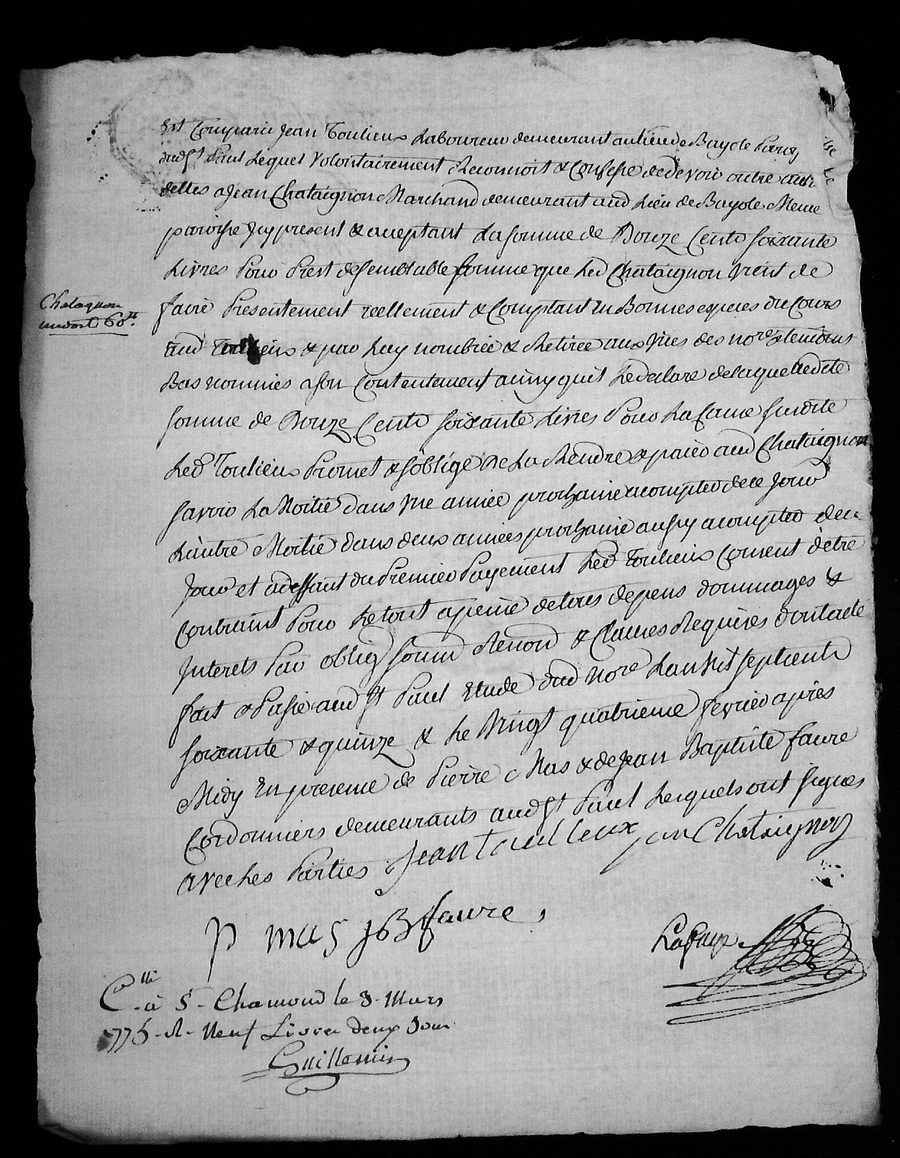 Est Comparu Jean Toulieux Laboureur demeurant au lieu de Bayole Paroisse
dud St Paul Lequel Volontairement Reconnoit & Confesse de devoir outre autr
delles a Jean Chataignon Marchand demeurant aud Lieu de Bayole Meme
paroisse Icy present & acceptant La somme de Douze Cents soixante
Livres Pour Prest de semblable somme que Led Chataignon vient de
faire Presentement reellement & Comptant En Bonnes especes du Cours
aud Toulieux & par Luy nombrée & Retirée aux vües des nore & temoins
Bas nommés a son Contentement ainsy quil Le declare de laquelle dite
somme de Douze Cents soixante Livres Pour La Cause susdite
Led Toulieux Promet & s'oblige de La Rendre & paier aud Chataignon
savoir La Moitié dans une année prochaine a compter de ce Jour
L'autre Moitié dans deux années prochaine aussy a compter de ce
Jour et a deffaut du Premier Payement Led Toulieux Consent d'etre
Contraint Pour Le tout a peine de tous depens dommages &
Interets Par oblig soum Renon & Clauses Requises dont acte
fait & Passé aud St Paul Etude dud nore L'an mil sept cents
soixante & quinze & Le vingt quatrieme fevrier apres
Midy En presence de Pierre Mas & de Jean Baptiste faure
Cordonniers demeurants aud St Paul Lesquels ont signés
avec Les Parties Jean toulieux jan Chataignon
Chataignon
60tt
p mas JB faure
Lafaye
C lle à St Chamond le 3 Mars
1775 R Neuf Livres deux Sous
Guillemin